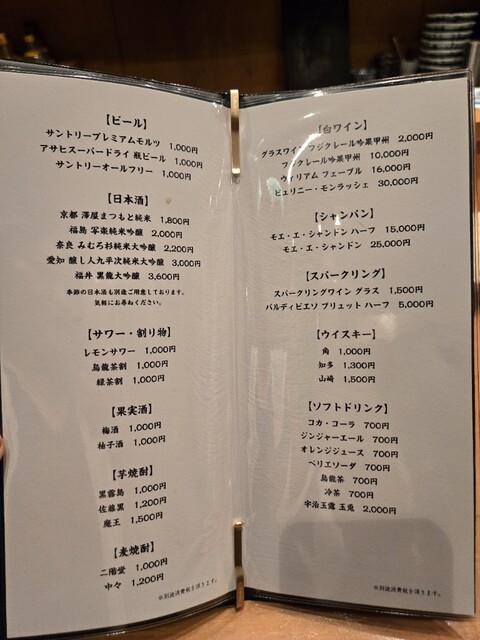 【ビール】
サントリープレミアムモルツ 1,000円
アサヒスーパードライ 瓶ビール 1,000円
サントリーオールフリー 1,000円
【日本酒】
京都 澤屋まつもと純米 1,800円
福島 写楽純米吟醸 2,000円
奈良 みむろ杉純米大吟醸 2,200円
愛知 醸し人九平次純米大吟醸 3,000円
福井 黒龍大吟醸 3,600円
季節の日本酒も別途ご用意しております。
気軽にお尋ねください。
【サワー・割り物】
レモンサワー 1,000円
烏龍茶割 1,000円
緑茶割 1,000円
【果実酒】
梅酒 1,000円
柚子酒 1,000円
【芋焼酎】
黒霧島 1,000円
佐藤黒 1,200円
魔王 1,500円
【麦焼酎】
二階堂 1,000円
中々 1,200円
※別途消費税を頂きます。
【白ワイン】
グラスワイン フジクレール吟果甲州 2,000円
フジクレール吟果甲州 10,000円
ウィリアム フェーブル 16,000円
ピュリニー・モンラッシェ 30,000円
【シャンパン】
モエ・エ・シャンドン ハーフ 15,000円
モエ・エ・シャンドン 25,000円
【スパークリング】
スパークリングワイン グラス 1,500円
バルディビエソ ブリュット ハーフ 5,000円
【ウイスキー】
角 1,000円
知多 1,300円
山崎 1,500円
【ソフトドリンク】
コカ・コーラ 700円
ジンジャーエール 700円
オレンジジュース 700円
ペリエソーダ 700円
烏龍茶 700円
冷茶 700円
宇治玉露 玉兎 2,000円
※別途消費税を頂きます。